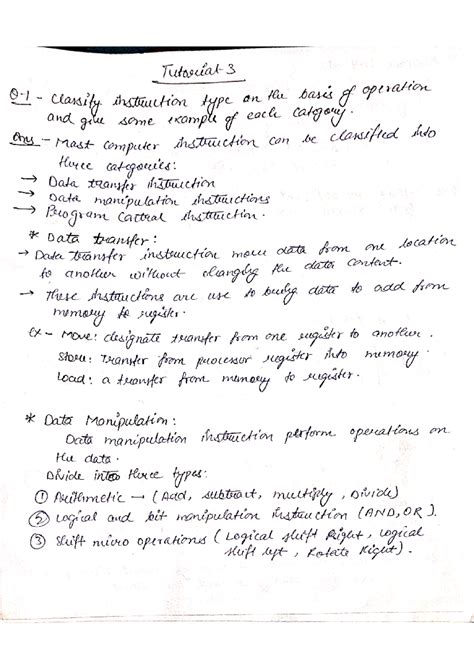 Tutorial-3
Q-1 - Classify instruction type on the basis of operation
and give some example of each category.
Ans - Most computer instruction can be classified into
three categories:
→ Data transfer instruction
→ Data manipulation instructions
→ Program Control instruction.
* Data transfer:
→ Data transfer instruction move data from one location
to another without changing the data content.
→ These instructions are use to bring data to add from
memory to register.
Ex - Move: designate transfer from one register to another.
Store: Transfer from processor register into memory.
Load: a transfer from memory to register.
* Data Manipulation:
Data manipulation instruction perform operations on
the data.
Divide into three types:
① Arithmetic → (Add, subtract, multiply, Divide)
② Logical and bit manipulation instruction (AND, OR).
③ Shift micro operations (Logical shift Right, Logical
shift left, Rotate Right).